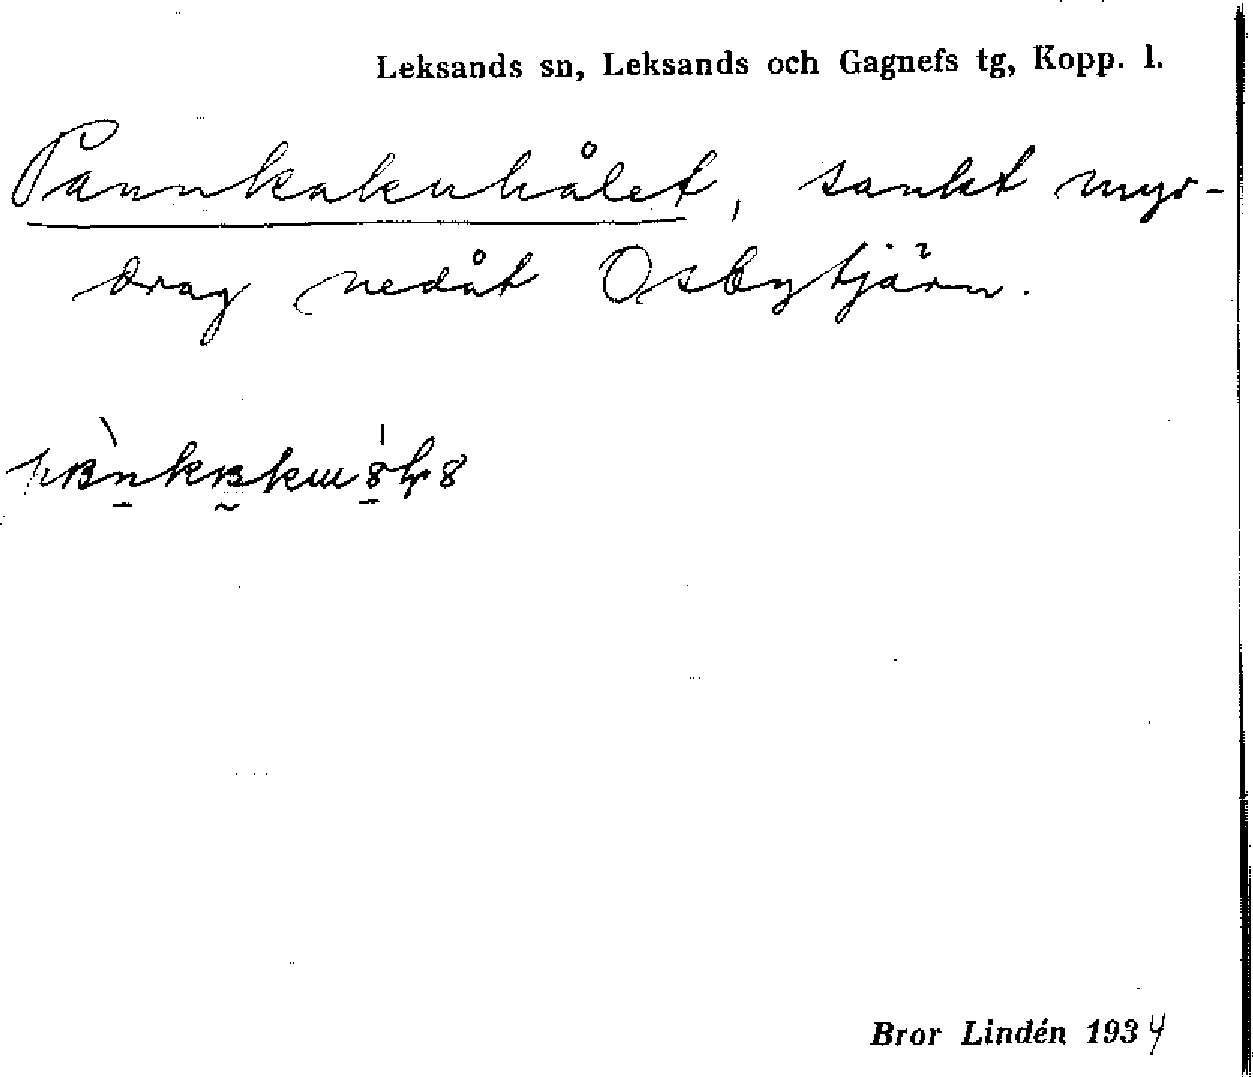 Leksands sn, Leksands och Gagnefs tg, Kopp. l.
Pannkakuhålet, sankt myr-
drag nedåt Osbytjärn.
Bror Lindén 1934